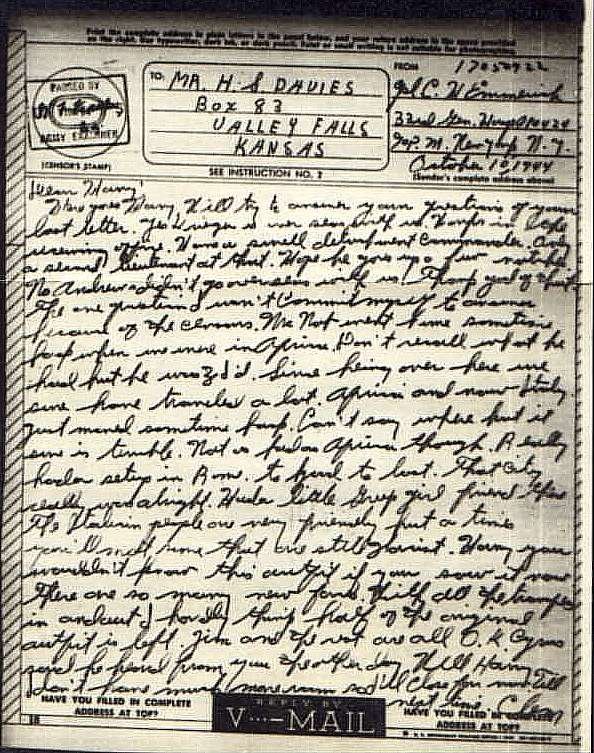 Print the complete address in plain letters in the panel below, and your return address in the space provided
on the right. Use typewriter, dark ink, or dark pencil. Faint or small writing is not suitable for photographing.
FROM
17052922
TO:
MR. H S DAVIES
BOX 83
VALLEY FALLS
KANSAS
33rd Gen. Hosp APO 424
P. M. New York N. Y.
October 10 1944
PASSED BY
ARMY EXAMINER
(CENSOR'S STAMP)
SEE INSTRUCTION NO. 2
(Sender's complete address above)
Dear Harry:
Here goes Harry. Will try to answer your questions of your
last letter.
a second lieutenant at that. Hope he goes up a few notches
No Andrews didn't go overseas with us. Thank god of that
The one question I won't commit myself to answer
because of the censors. Mc Nat went home sometime
back when we were in Africa. Don't recall what he
had but he was Z I'd. Since being over here we
sure have traveled a lot. Africa and now Italy
Just moved sometime back. Can't say where but it
sure is terrible. Not as bad as Africa though. R really
had a setup in Rome. to good to last. That city
really was alright. Had a little girl friend
The Italian people are very friendly but at times
you'll meet some that are still Fascist. Harry you
wouldn't know this outfit if you saw it now
There are so many new faces. With all the transfers
in and out I hardly think half of the original
outfit is left. Jim and the rest are all O. K. Cyrus
said he heard from you the other day. Well Harry
I don't have much more room so I'll close for now. Till
next time. Clem
HAVE YOU FILLED IN COMPLETE
ADDRESS AT TOP?
REPLY BY
V···–MAIL
HAVE YOU FILLED IN COMPLETE
ADDRESS AT TOP?